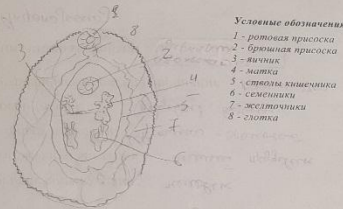 Условные обозначения
1 - ротовая присоска
2 - брюшная присоска
3 - яичник
4 - матка
5 - стволы кишечника
6 - семенники
7 - желточники
8 - глотка
8
3
2
4
5
7
6